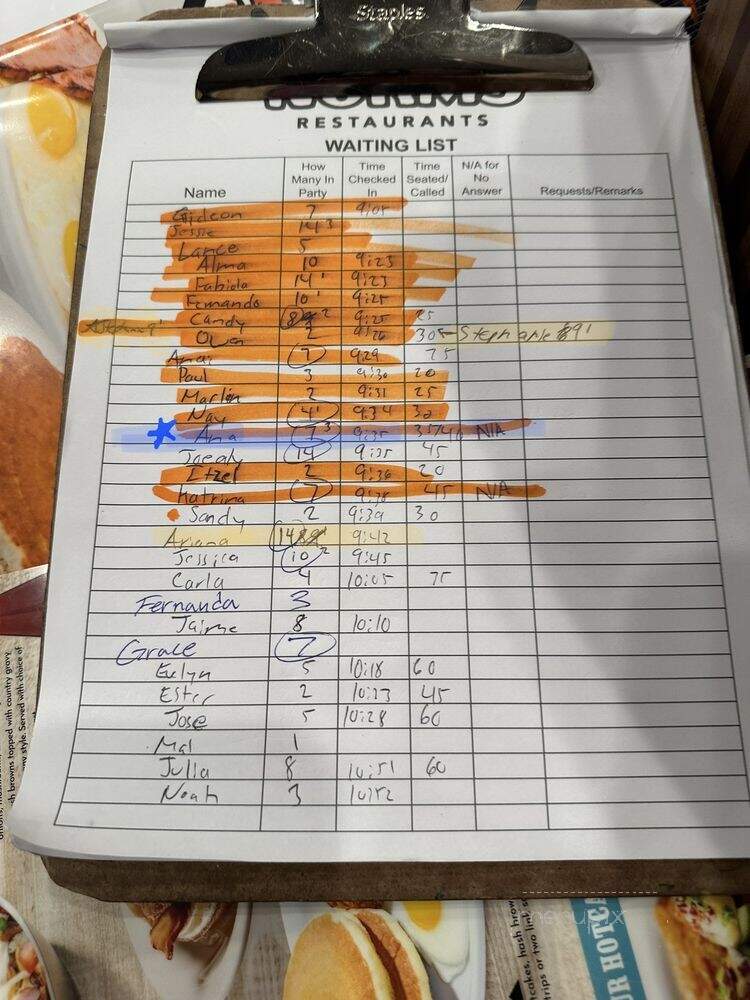 Staples
NORMS
RESTAURANTS
WAITING LIST
Name How Many In Party Time Checked In Time Seated/ Called N/A for No Answer Requests/Remarks
Gideon 7 9:05
Jessie 14 3
Lance 5
Alma 10 9:23
Fabiola 14 9:23
Fernando 10 9:25
Candy 2 9:25 25
Owen 2 9:26 30 Stephanie
7 9:29 25
Paul 3 9:30 20
Marlin 2 9:31 25
Nay 4 9:34 30
Ana 3 9:35 35/40 N/A
14 9:35 45
Itzel 2 9:36 20
Katrina 7 9:38 45 N/A
Sandy 2 9:39 30
Ariana 14 9:42
Jessica 10 2 9:45
Carla 4 10:05 75
Fernanda 3
Jaime 8 10:10
Grace 7
Evelyn 5 10:18 60
Ester 2 10:23 45
Jose 5 10:28 60
Mal 1
Julia 8 10:51 60
Noah 3 10:52
sh browns topped with country gravy
style. Served with choice of
cakes, hash brow
trips or two link s
R HOTCA